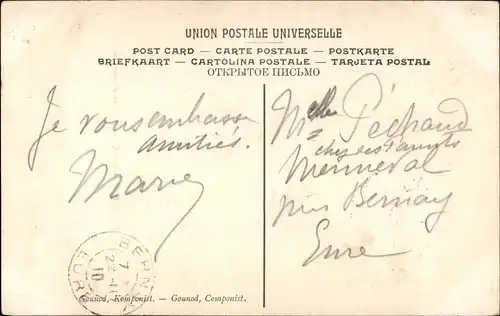 UNION POSTALE UNIVERSELLE
POST CARD — CARTE POSTALE — POSTKARTE
BRIEFKAART — CARTOLINA POSTALE — TARJETA POSTAL
ОТКРЫТОЕ ПИСЬМО
Je vous embrasse
amitiés.
Marie
Melle Péchaud
chez ses parents
Menneval
près Bernay
Eure
BERNAY
7
10
EURE
Gounod, Komponist. — Gounod, Componist.